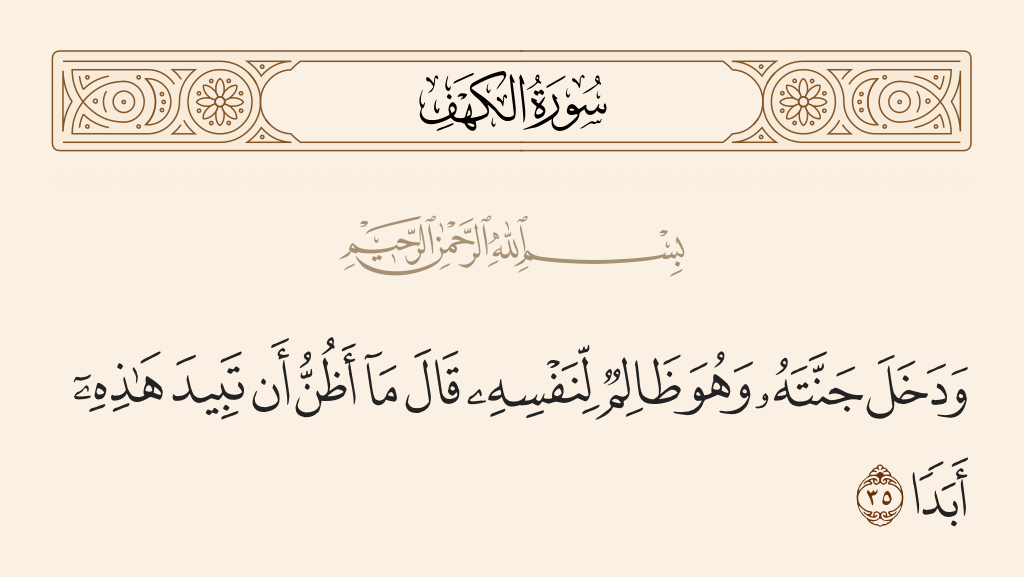 سُورَةُ الكَهْفِ
بِسْمِ ٱللَّهِ ٱلرَّحْمَٰنِ ٱلرَّحِيمِ
وَدَخَلَ جَنَّتَهُۥ وَهُوَ ظَالِمٌۭ لِّنَفْسِهِۦ قَالَ مَآ أَظُنُّ أَن تَبِيدَ هَٰذِهِۦٓ
أَبَدًۭا ٣٥